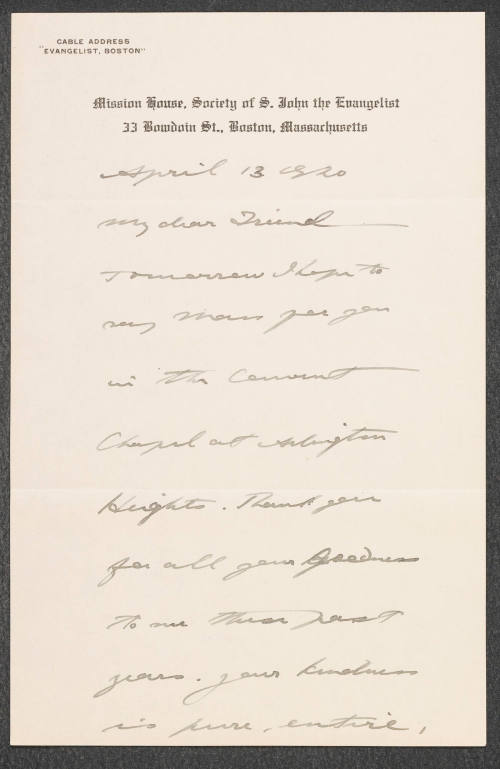 CABLE ADDRESS
"EVANGELIST, BOSTON"
Mission House, Society of S. John the Evangelist
33 Bowdoin St., Boston, Massachusetts
April 13 1920
My dear Friend
Tomorrow I hope to
say Mass for you
in the Convent
Chapel at Arlington
Heights. Thank you
for all your goodness
to me these past
years. Your kindness
is pure, entire,